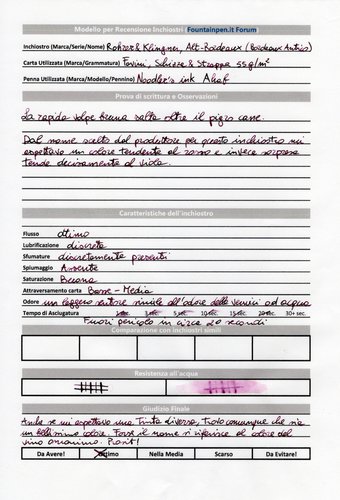 Modello per Recensione Inchiostri (Fountainpen.it Forum)
Inchiostro (Marca/Serie/Nome) Rohrer & Klingner, Alt-Bordeaux (Bordeaux Antico)
Carta Utilizzata (Marca/Grammatura) Favini, Schizza & Strappa 55g/m²
Penna Utilizzata (Marca/Modello/Pennino) Noodler's ink Ahab
Prova di scrittura e Osservazioni
La rapida volpe bruna salta oltre il pigro cane.
Dal nome scelto dal produttore per questo inchiostro mi
aspettavo un colore tendente al rosso e invece sorpresa
tende decisamente al viola.
Caratteristiche dell'inchiostro
Flusso ottimo
Lubrificazione discreta
Sfumature discretamente presenti
Spiumaggio Assente
Saturazione Buona
Attraversamento carta Basso - Medio
Odore un leggero sentore simile all'odore delle vernici ad acqua
Tempo di Asciugatura 1sec. 3sec. 6sec. 10sec. 15sec. 20sec. 30+ sec.
Fuori pericolo in circa 20 secondi
Comparazione con inchiostri simili
Resistenza all'acqua
Giudizio Finale
Anche se mi aspettavo una tinta diversa, trovo comunque che sia
un bellissimo colore. Forse il nome si riferisce al colore del
vino omonimo. Prosit!
Da Avere! Ottimo Nella Media Scarso Da Evitare!